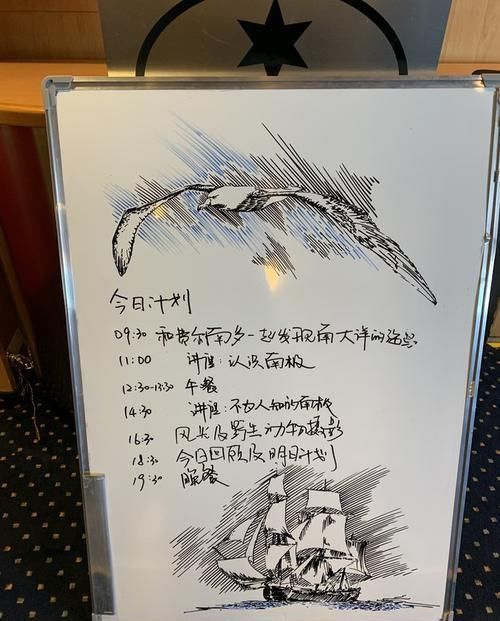 今日计划
09:30 和费尔南多一起发现南大洋的海鸟
11:00 讲座:认识南极
12:30-13:30 午餐
14:30 讲座:不为人知的南极
16:30 风光及野生动物摄影
18:30 今日回顾及明日计划
19:30 晚餐